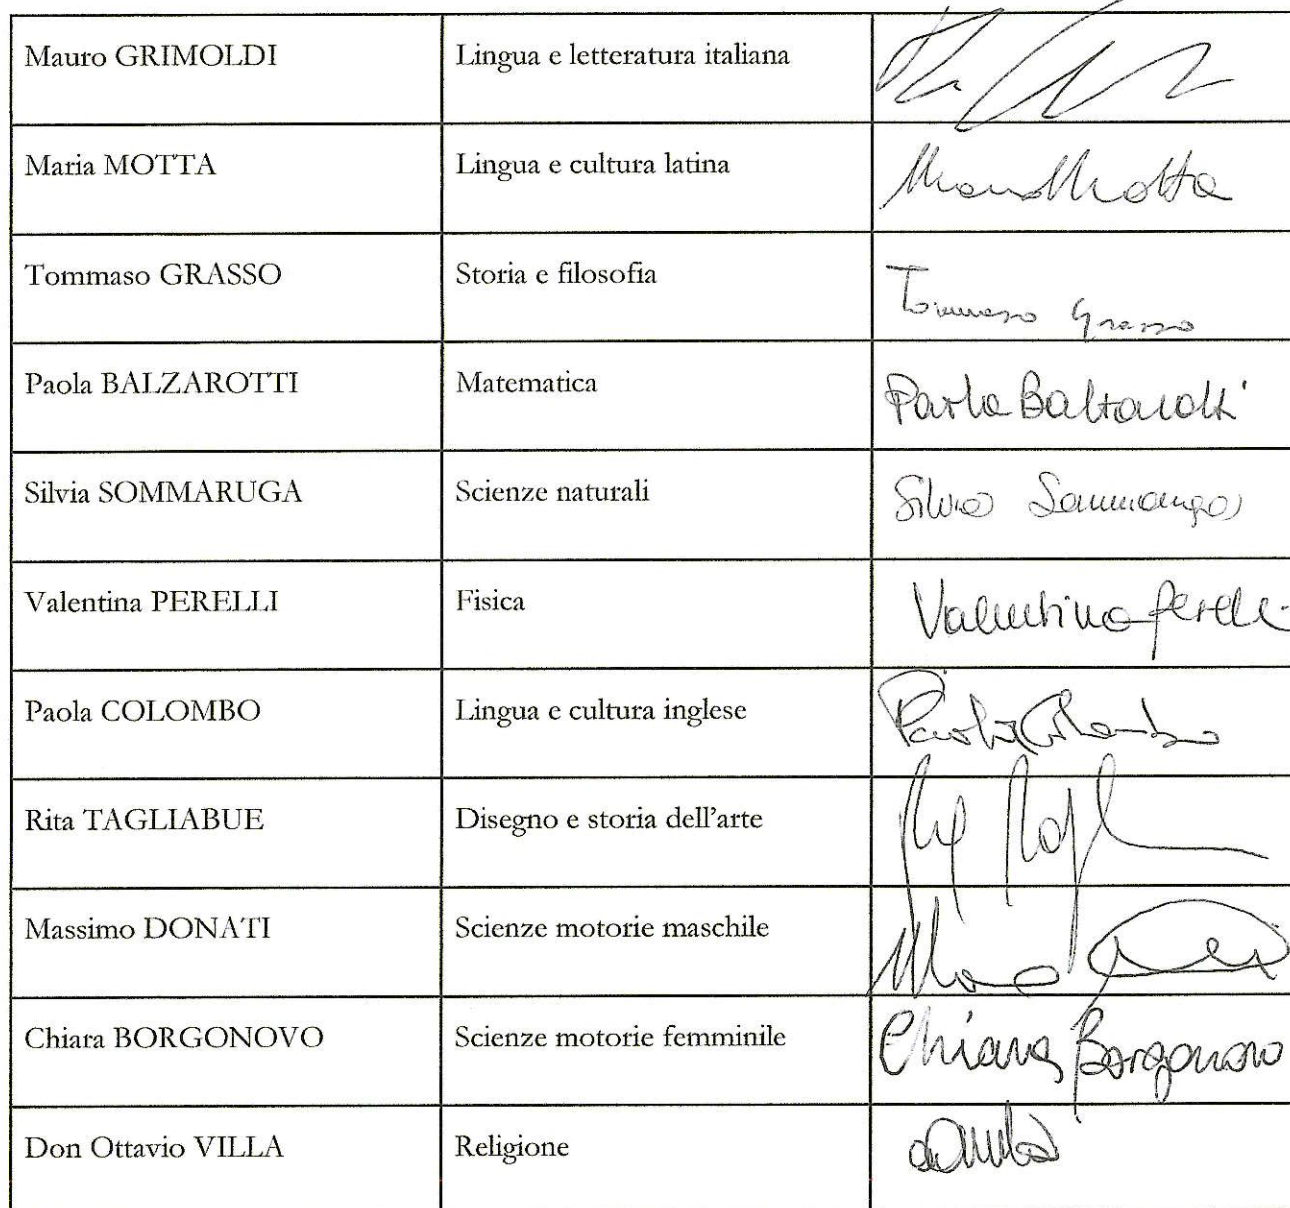 Mauro GRIMOLDI Lingua e letteratura italiana
Maria MOTTA Lingua e cultura latina Maria Motta
Tommaso GRASSO Storia e filosofia Tommaso Grasso
Paola BALZAROTTI Matematica Paola Balzarotti
Silvia SOMMARUGA Scienze naturali Silvia Sommaruga
Valentina PERELLI Fisica Valentina Perelli
Paola COLOMBO Lingua e cultura inglese Paola Colombo
Rita TAGLIABUE Disegno e storia dell'arte
Massimo DONATI Scienze motorie maschile
Chiara BORGONOVO Scienze motorie femminile Chiara Borgonovo
Don Ottavio VILLA Religione